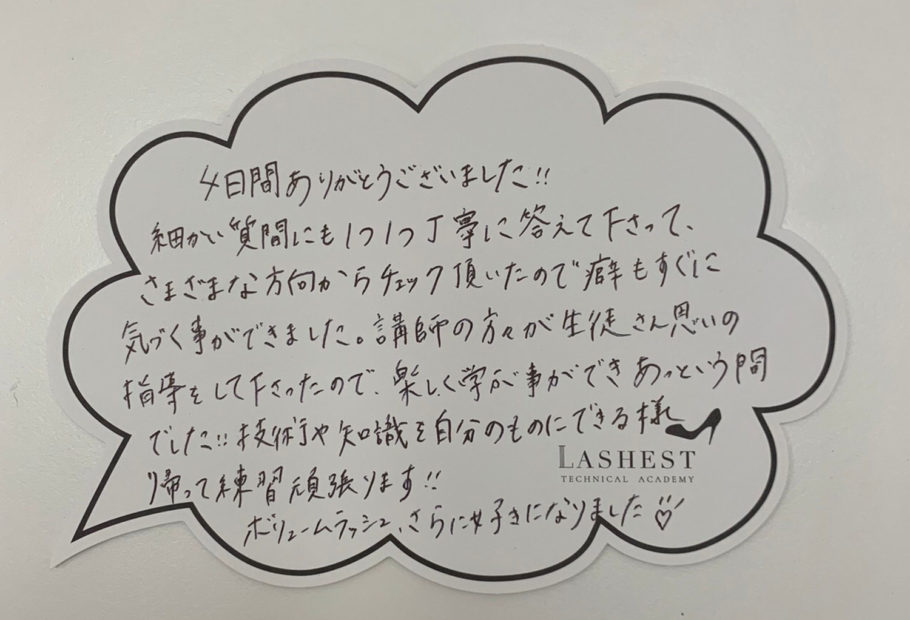 4日間ありがとうございました!!
細かい質問にも1つ1つ丁寧に答えて下さって、
さまざまな方向からチェック頂いたので癖もすぐに
気づく事ができました。講師の方々が生徒さん思いの
指導をして下さったので、楽しく学ぶ事ができあっという間
でした!!技術や知識を自分のものにできる様
帰って練習頑張ります!!
ボリュームラッシュ、さらに好きになりました♡
LASHEST
TECHNICAL ACADEMY